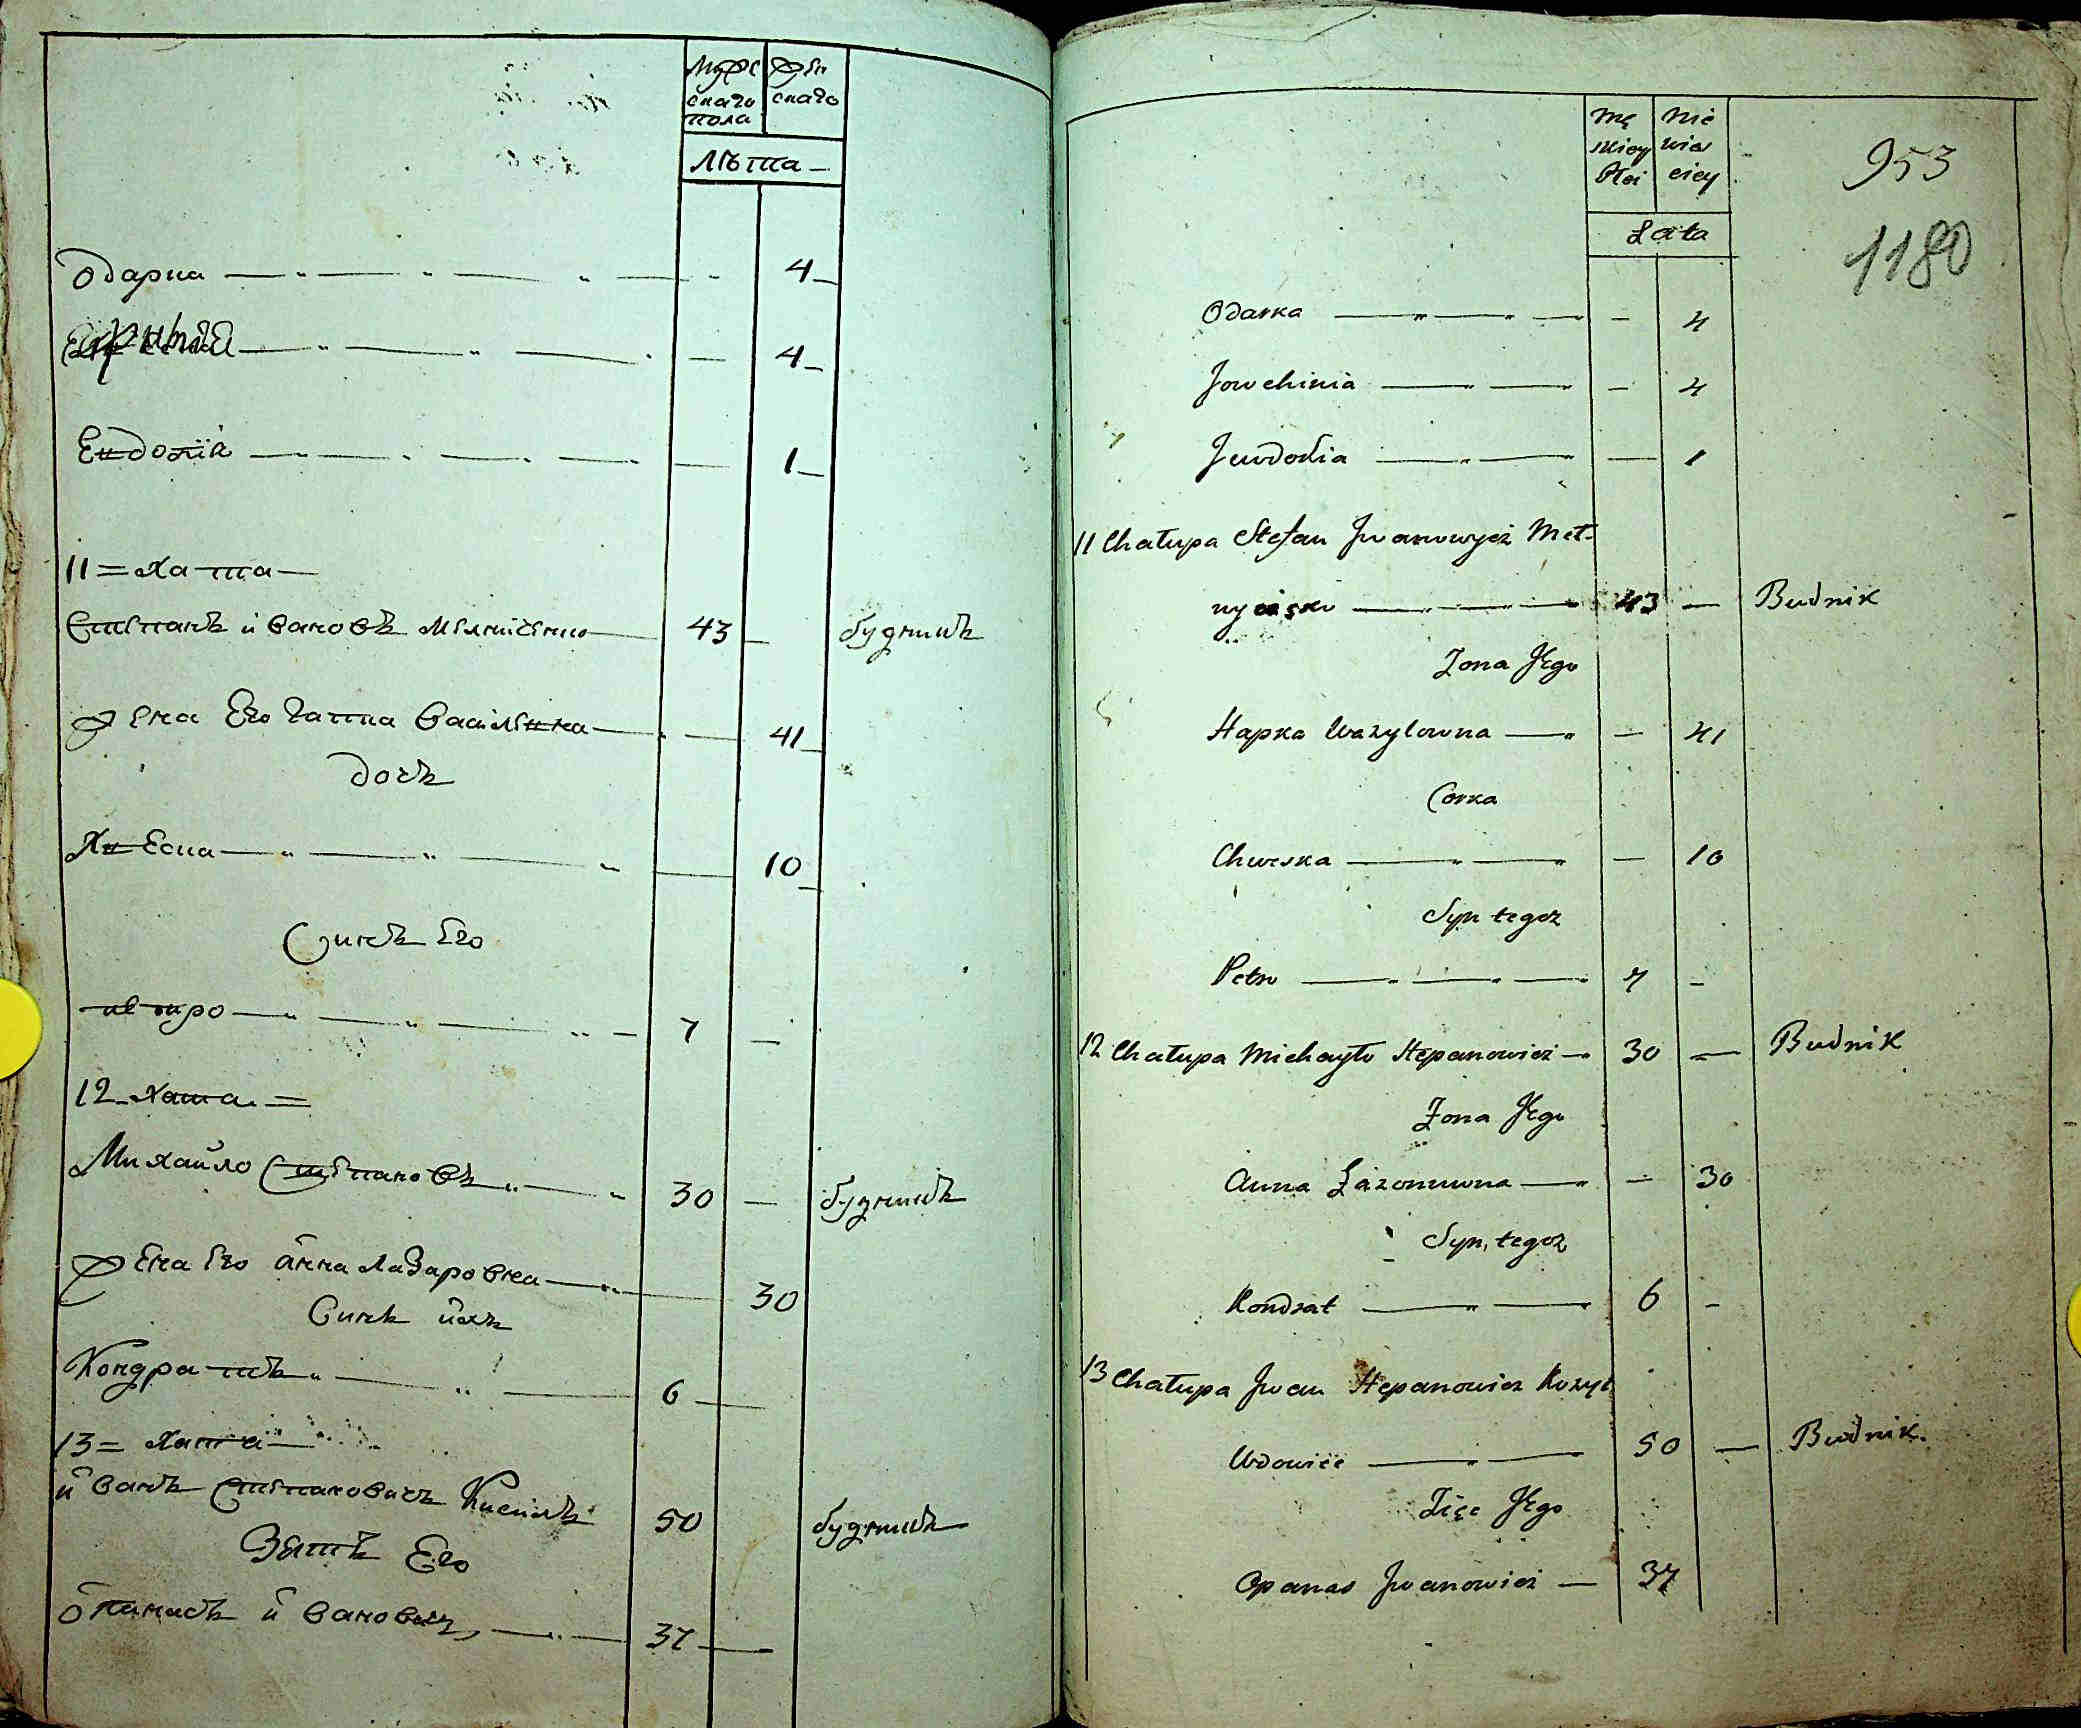 Мужс женс
скаго скаго
пола
Лѣта
Одарка 4
4
Евдокія 1
11 = хата
Степанъ ивановъ Мелниченко 43 будникъ
жена Его гапка василевна 41
дочь
Хвеска 10
Синъ Его
петро 7
12 хата =
Михайло Степановъ 30 будникъ
жена Его анна лазаровна 30
Синъ ихъ
Кондратъ 6
13 = хата
иванъ Степановичъ 50 будникъ
Зять Его
опанасъ ивановичъ 37
Mę Nie
skiey wies
Płci ciey
Lata
953
1180
Odarka 4
Jowchinia 4
Jewdokia 1
11 Chałupa Stefan Jwanowycz Meł-
43 Budnik
Zona Jego
Hapka Wazylowna 41
Corka
Chweska 10
Syn tegoz
Petro 7
12 Chałupa Michayło Stepanowicz 30 Budnik
Zona Jego
Anna Łazorowna 30
Syn tegoz
Kondrat 6
13 Chałupa Jwan Stepanowicz
Wdowiec 50 Budnik.
Zięc Jego
Opanas Jwanowicz 37